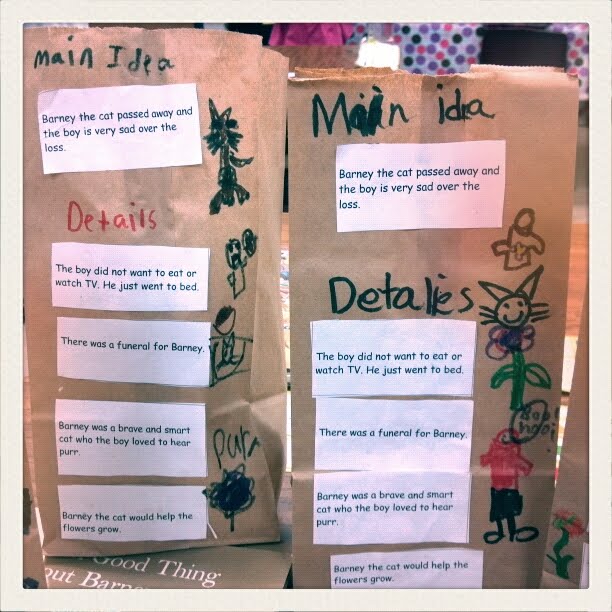 Main Idea
Barney the cat passed away and
the boy is very sad over the
loss.
Details
The boy did not want to eat or
watch TV. He just went to bed.
There was a funeral for Barney.
Barney was a brave and smart
cat who the boy loved to hear
purr.
purr
Barney the cat would help the
flowers grow.
Good Thing
out Barne
Main idea
Barney the cat passed away and
the boy is very sad over the
loss.
Detalies
The boy did not want to eat or
watch TV. He just went to bed.
There was a funeral for Barney.
Barney was a brave and smart
cat who the boy loved to hear
purr.
Barney the cat would help the
flowers grow.